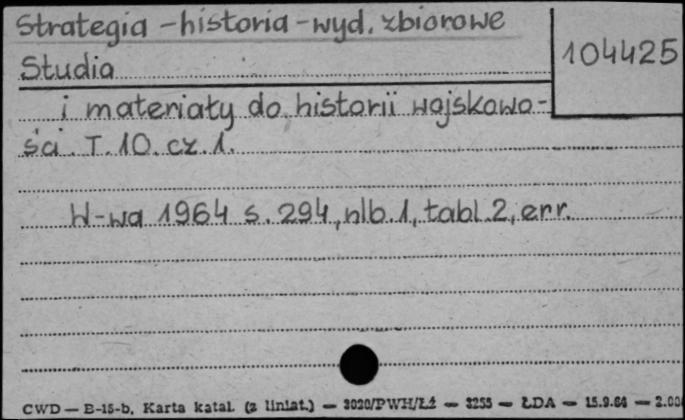 Strategia – historia – wyd. zbiorowe
104425
Studia
i materiały do historii wojskowo-
ści. T. 10. cz. 1.
W-wa 1964 s. 294, nlb. 1, tabl. 2, err.
CWD — E-15-b. Karta katal. (z liniat.) — 3020/PWH/Łź — 3255 — ŁDA — 15.9.64 —